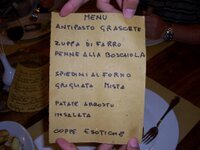 MENU
ANTIPASTO GRASCETE
ZUPPA DI FARRO
PENNE ALLA BOSCAIOLA
SPIEDINI AL FORNO
GRIGLIATA MISTA
PATATE ARROSTO
INSALATA
COPPE ESOTICHE